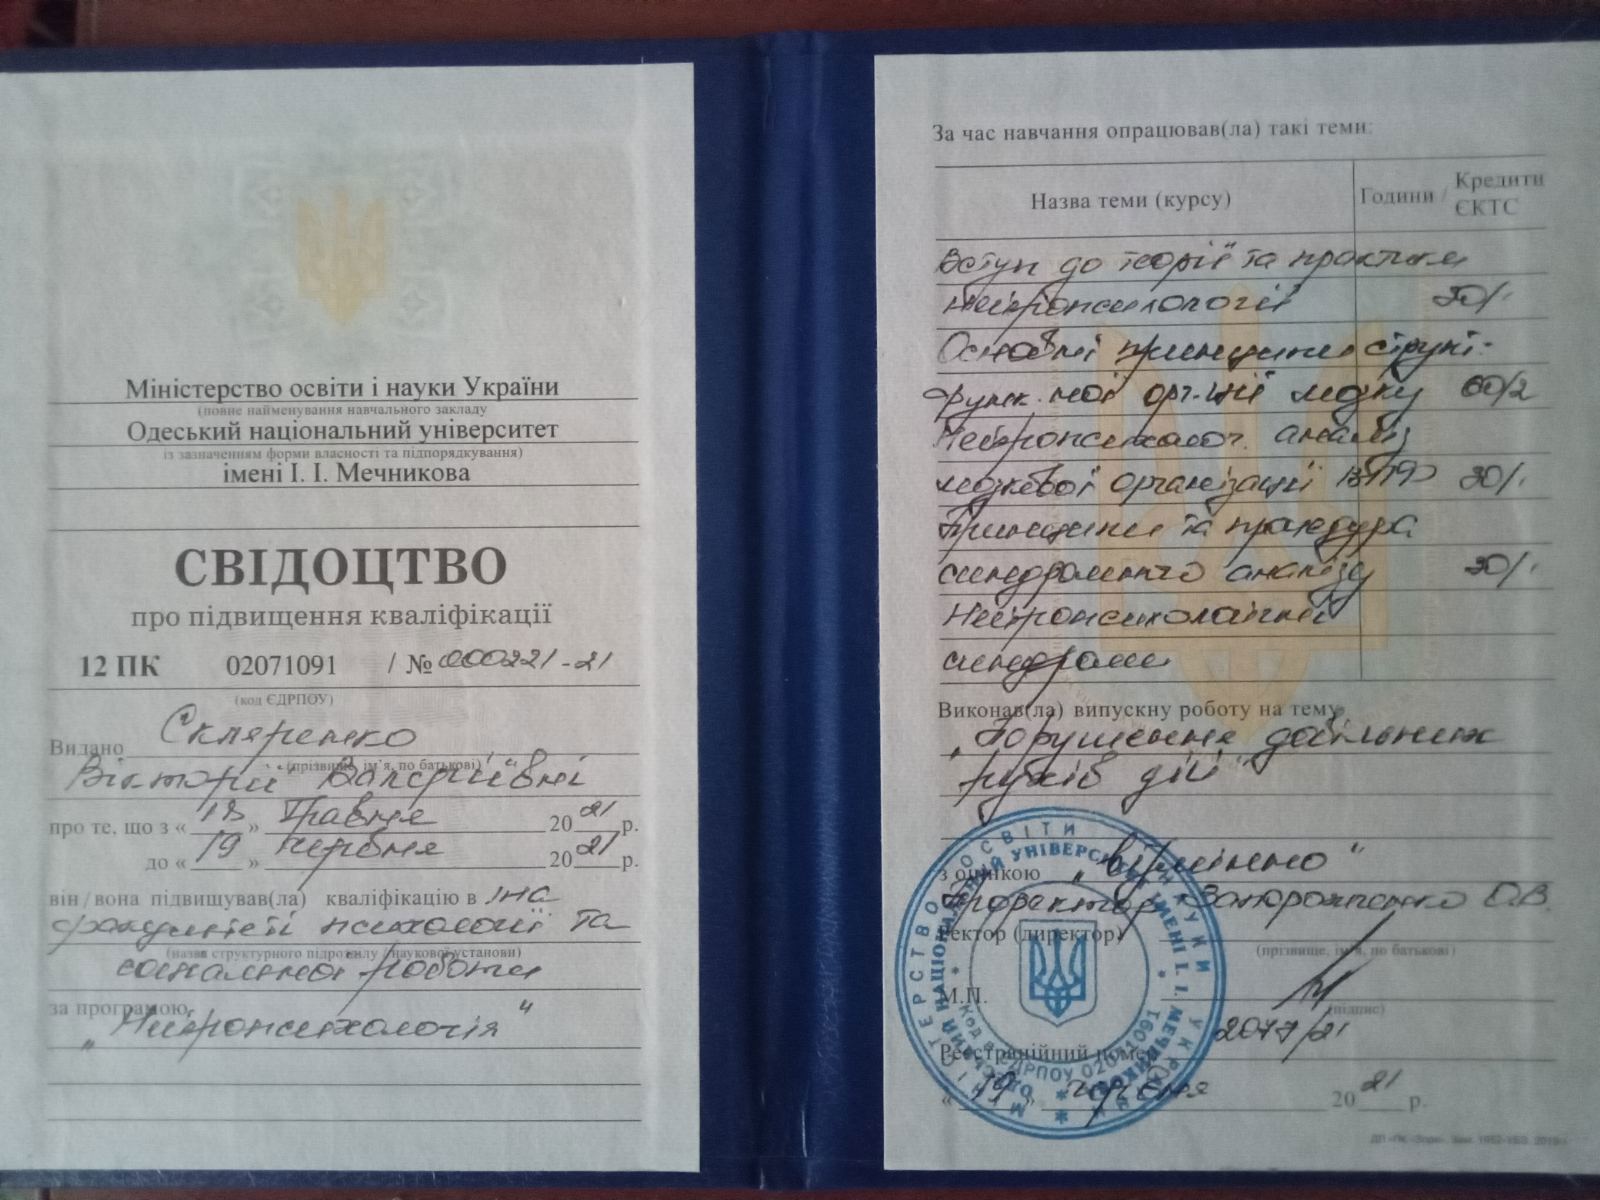 Міністерство освіти і науки України
(повне найменування навчального закладу
Одеський національний університет
із зазначенням форми власності та підпорядкування)
імені І. І. Мечникова
СВІДОЦТВО
про підвищення кваліфікації
12 ПК 02071091 / № 000221-21
(код ЄДРПОУ)
Видано Скляренко
(прізвище, ім'я, по батькові)
Вікторії Валеріївні
про те, що з « 13 » травня 20 21 р.
до « 19 » червня 20 21 р.
він/вона підвищував(ла) кваліфікацію в /на
факультеті психології та
(назва структурного підрозділу / наукової установи)
соціальної роботи
за програмою,
„Нейропсихологія"
За час навчання опрацював(ла) такі теми:
Назва теми (курсу) Години / Кредити ЄКТС
Вступ до теорії та практики
нейропсихології 30/1
Основні принципи структ.-
функ.-ної орг-ції мозку 60/2
Нейропсихолог. аналіз
мозкової організації ВПФ 30/1
Принципи та процедура
синдромного аналізу 30/1
Нейропсихологічні
синдроми
Виконав(ла) випускну роботу на тему
„Порушення довільних
рухів дій"
з оцінкою „відмінно"
Проректор Запорожченко О.В.
Ректор (директор)
(прізвище, ім'я, по батькові)
М.П.
(підпис)
Реєстраційний номер 2077/21
« 19 » червня 20 21 р.
МІНІСТЕРСТВО ОСВІТИ І НАУКИ УКРАЇНИ
ОДЕСЬКИЙ НАЦІОНАЛЬНИЙ УНІВЕРСИТЕТ ІМЕНІ І. І. МЕЧНИКОВА
Код в ЄДРПОУ 02071091